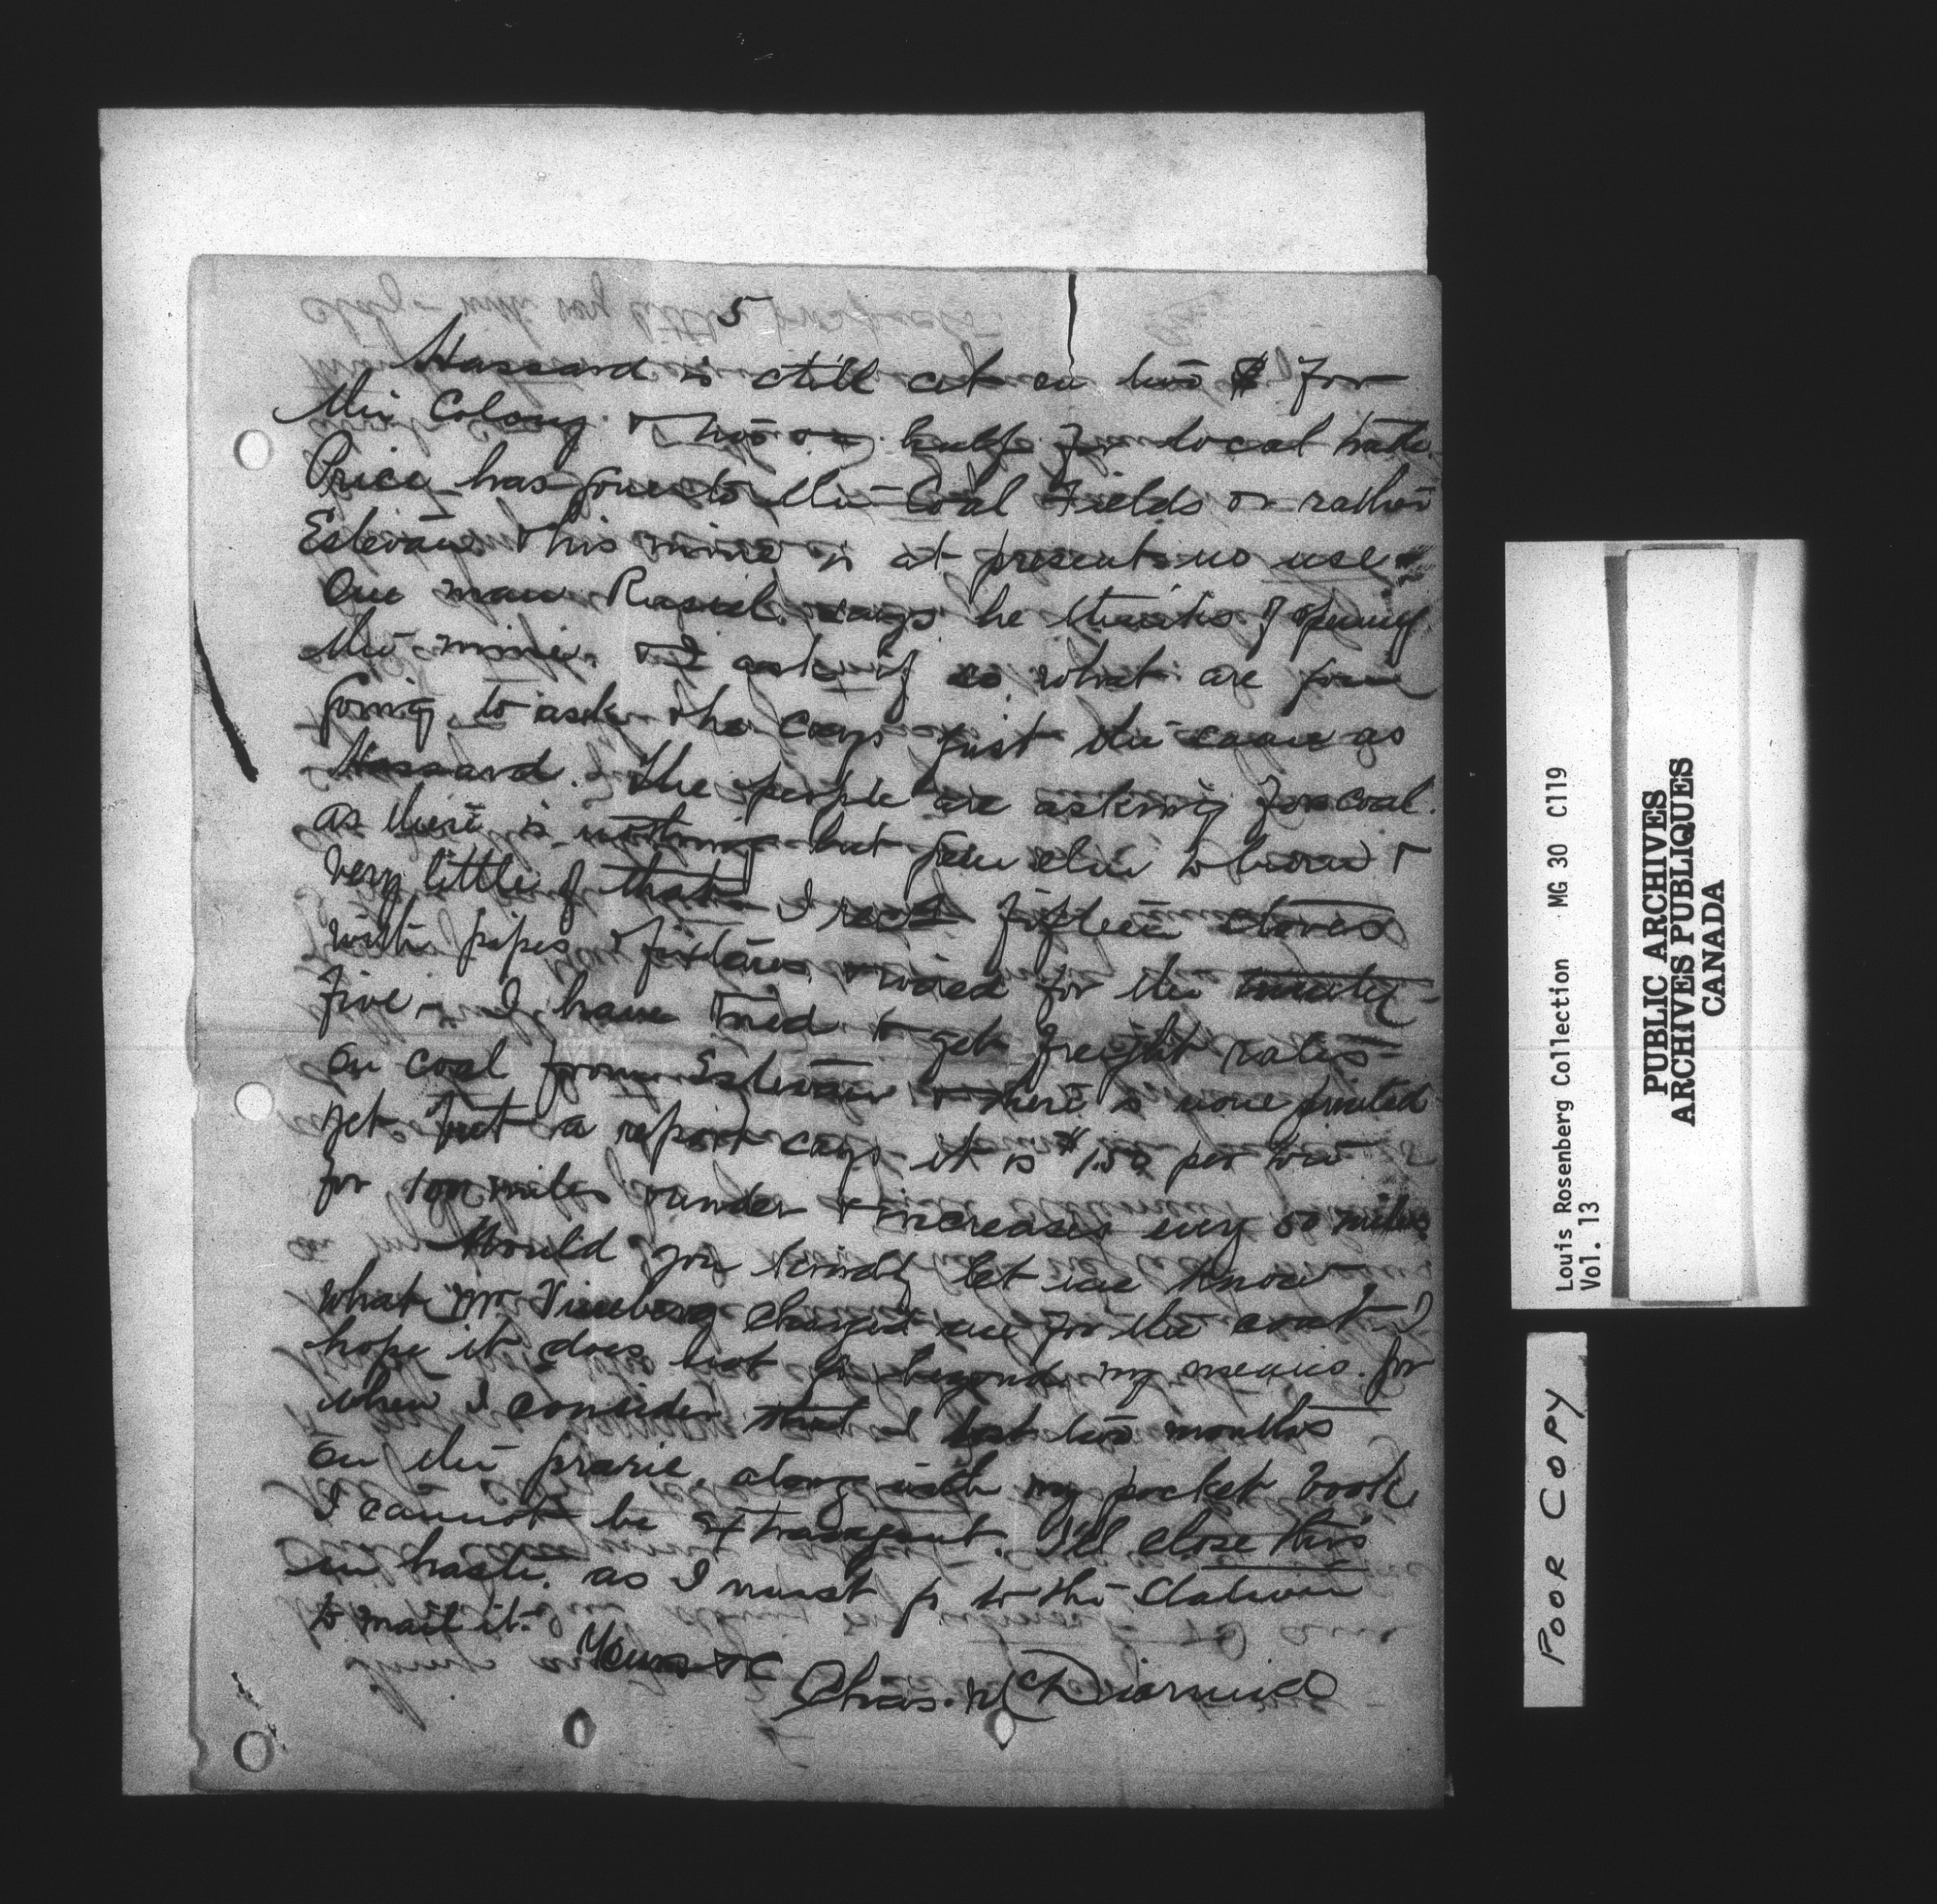 5
Hassard is still at on two $ for
the Colony & two & half for local trade.
Price has gone to the Coal Fields or rather
Estevan & his mine is at present no use
One man says he thinks of opening
the mine. & I ask if so what are you
going to ask & he says just the same as
Hassard. The people are asking for coal.
as there is nothing but green elm to burn &
very little of that I rec'd fifteen stoves
with pipes & fixtures & wired for the twenty
five. I have tried to get freight rates
on coal from Estevan & there is none printed
yet but a report says it is $1.50 per ton
for 100 miles & under & increases every 50 miles.
Would you kindly let me know
what Mr charged me for the coat I
hope it does not go beyond my means. for
when I consider that I lost two months
on the prarie, along with my pocket book
I cannot be extravagent. I'll close this
in haste. as I must go to the Station
to mail it.
Yours &c
Chas. McDiarmid
Louis Rosenberg Collection MG 30 C119
Vol. 13
PUBLIC ARCHIVES
ARCHIVES PUBLIQUES
CANADA
POOR COPY